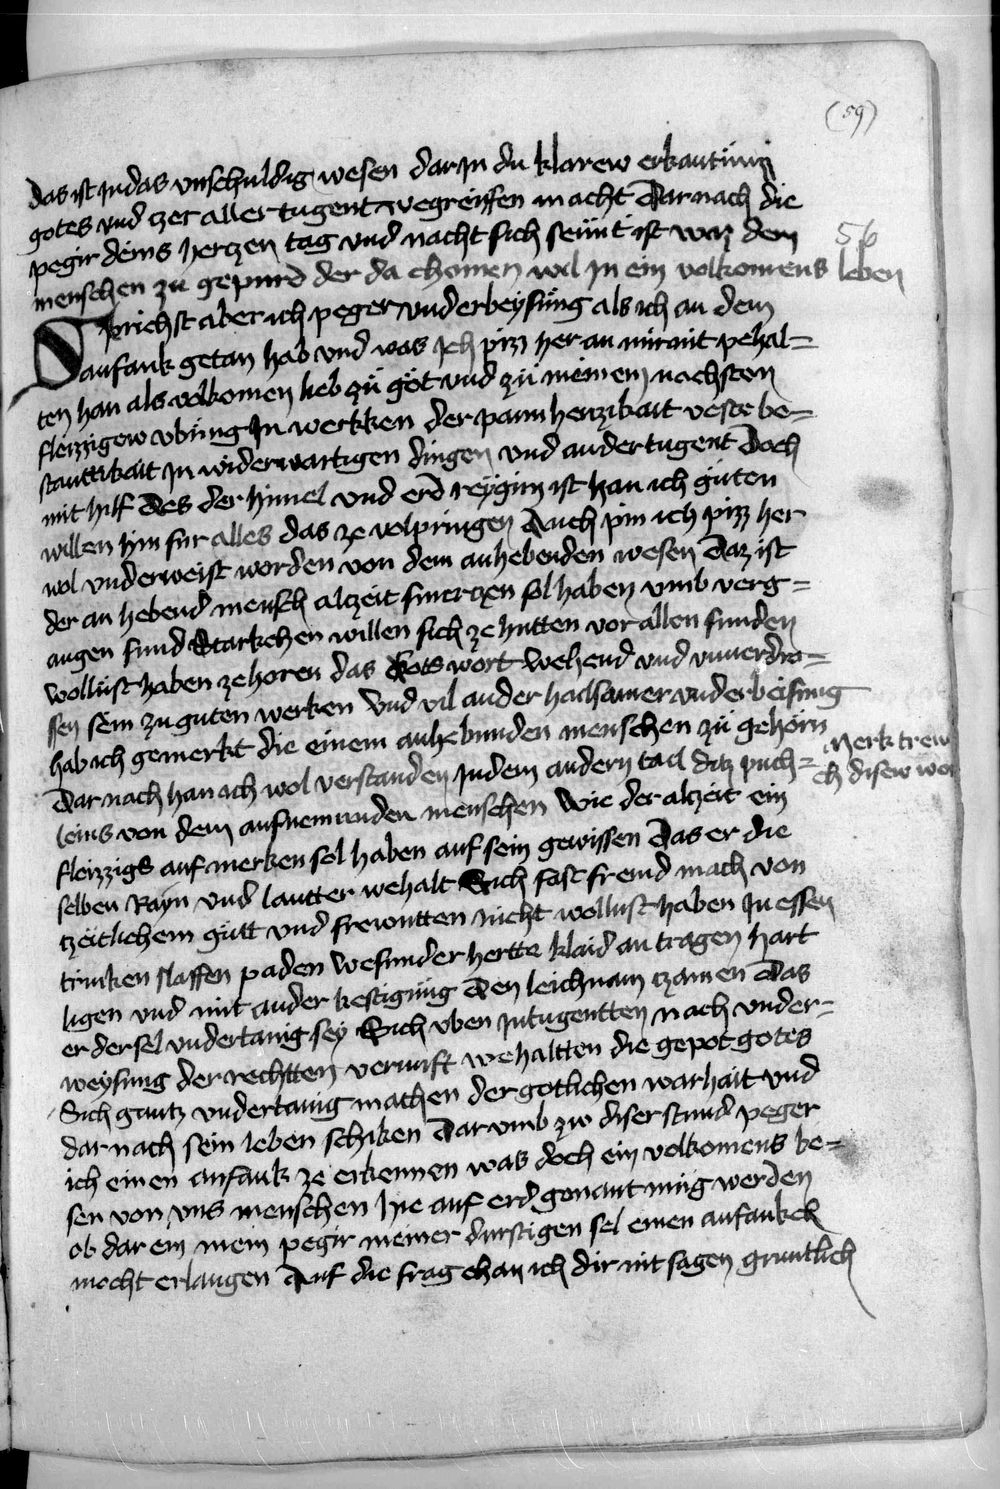 (59)
das ist in das vnschuldig wesen dar in du klarew erkantnüzz
gotes vnd czer aller tugent wegreiffen macht Dar nach die
pegir deins hertzen tag vnd nacht sich senünt ist waz dem
56
menschen zu gepürd der da chomen wil in ein volkomens leben
Sprichst aber ich peger vnderbeysüng als ich an dem
anfank getan hab vnd was ich pizz her an mir nit pehal=
ten han als volkomen lieb zü got vnd zü meinem nachsten
fleizzigew vbüng in werkken der parmherczikait veste be=
stanttikait in widerwartigen dingen vnd ander tugent Doch
mit hilf des der himel vnd erd reygirn ist han ich güten
willen hin für alles das ze volpringen Auch pin ich pizz her
wol vnderweist worden von dem anhebenden wesen Daz ist
der an hebend mensch alczeit smerczen sol haben vmb verg=
angen sund Starkchen willen sich ze hutten vor allen sunden
wollust haben ze horen das Gots wort wehend vnd vnuerdro=
ssen sein zu guten werken Vnd vil ander hailsamer vnderbeisung
hab ich gemerkt die einem anhebunden menschen zü gehorn
Dar nach han ich wol verstanden in dem andern tail ditz puch=
Merk trew
ch disew wor
leins von dem aufnemunden menschen Wie der alczeit ein
fleizzigs auf merken sol haben auf sein gewissen Das er die
selben Rayn vnd lautter wehalt Sich fast fremd mach von
tzeitlichem gutt vnd frewntten nicht wollust haben in essen
trinken slaffen paden wesunder hertte klaid an tragen hart
ligen vnd mit ander kestigung Den leichnam czamen Das
er der sel vndertanig sey Sich vben in tugentten nach vnder=
weysung der rechtten vernuft wehaltten die gepot gotes
Sich gantz vndertanig machen der gotlichen warhait vnd
dar nach sein leben schiken Dar vmb zw diser stund peger
ich einen anfank ze erkennen was doch ein volkomens be=
sen von vns menschen hie auf erd genant müg werden
ob dar ein mein pegir meiner durstigen sel einen anfankch
mocht erlangen Auf die frag chan ich dir nit sagen gruntlich